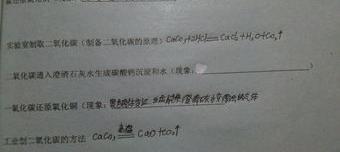 实验室制取二氧化碳（制备二氧化碳的原理）CaCO₃+2HCl=CaCl₂+H₂O+CO₂↑
二氧化碳通入澄清石灰水生成碳酸钙沉淀和水（现象：）
一氧化碳还原氧化铜（现象：黑色
工业制二氧化碳的方法 CaCO₃ 高温 CaO+CO₂↑